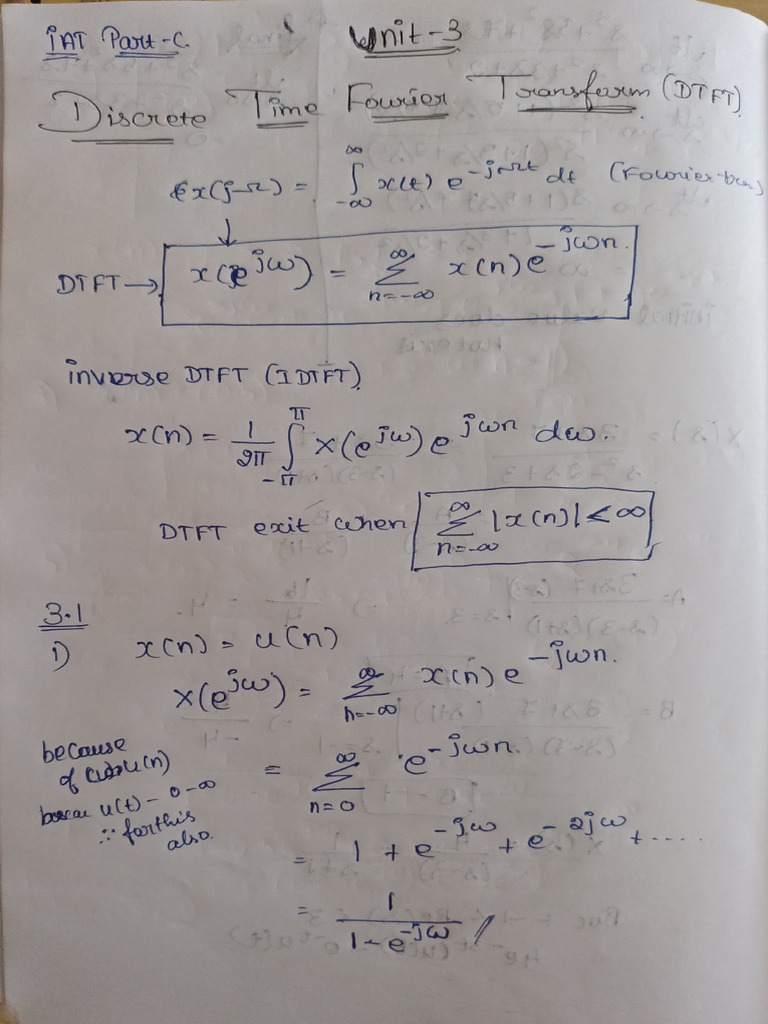 IAT Part-C.
Unit-3
Discrete Time Fourier Transform (DTFT)
x(jΩ) = ∫_{-∞}^{∞} x(t) e^{-jΩt} dt (Fourier
↓
DTFT → x(e^{jω}) = ∑_{n=-∞}^{∞} x(n) e^{-jωn}.
inverse DTFT (IDTFT)
x(n) = 1/2π ∫_{-π}^{π} X(e^{jω}) e^{jωn} dω.
DTFT exit when ∑_{n=-∞}^{∞} |x(n)| < ∞
3.1
1) x(n) = u(n)
X(e^{jω}) = ∑_{n=-∞}^{∞} x(n) e^{-jωn}.
because
of u(n)
u(t) - 0-∞
∴ for this
also.
= ∑_{n=0}^{∞} e^{-jωn}.
= 1 + e^{-jω} + e^{-2jω} + .....
= 1/(1-e^{-jω}) //